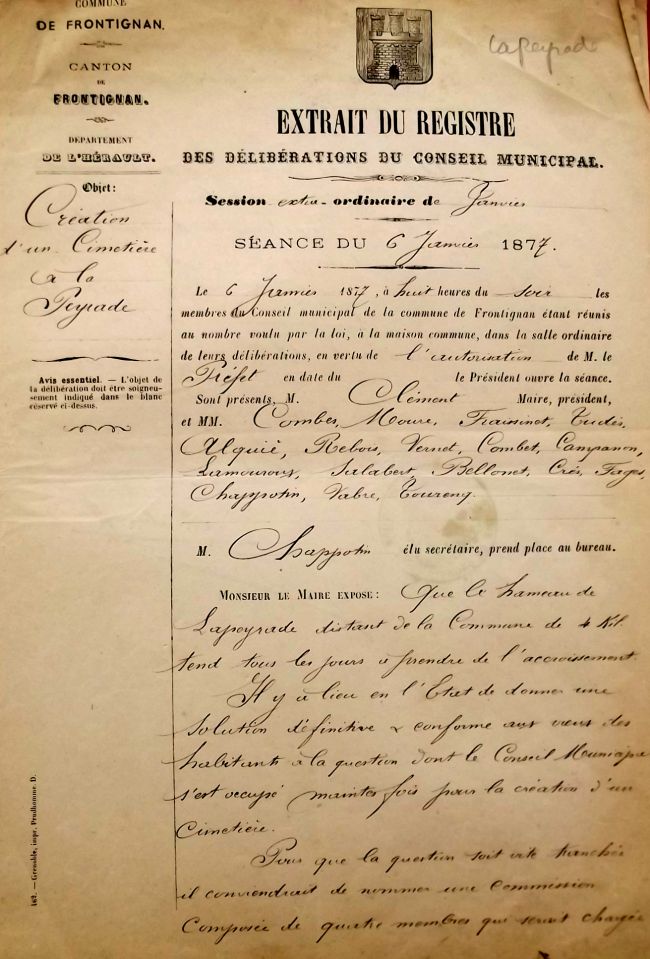 COMMUNE
DE FRONTIGNAN.
CANTON
DE
FRONTIGNAN.
DÉPARTEMENT
DE L'HÉRAULT.
Objet:
Création
d'un Cimetière
à la
Peyrade
Avis essentiel. — L'objet de
la délibération doit être soigneu-
sement indiqué dans le blanc
réservé ci-dessus.
162. — Grenoble, impr. Prudhomme. D.
Lapeyrade
EXTRAIT DU REGISTRE
DES DÉLIBÉRATIONS DU CONSEIL MUNICIPAL.
Session extra-ordinaire de Janvier
SÉANCE DU 6 Janvier 1877.
Le 6 Janvier 1877, à huit heures du soir les
membres du Conseil municipal de la commune de Frontignan étant réunis
au nombre voulu par la loi, à la maison commune, dans la salle ordinaire
de leurs délibérations, en vertu de l'autorisation de M. le
Préfet en date du le Président ouvre la séance.
Sont présents, M. Clément Maire, président,
et MM. Combes, Moure, Fraissinet, Eudes,
Alquié, Rebois, Vernet, Combet, Campanon,
Lamouroux, Salabert, Bellonet, Crès, Fages,
Chappotin, Vabre, Tourenq.
M. Chappotin élu secrétaire, prend place au bureau.
MONSIEUR LE MAIRE EXPOSE: Que le hameau de
Lapeyrade distant de la Commune de 4 Kil.
tend tous les jours à prendre de l'accroissement.
Il y a lieu en l'Etat de donner une
solution définitive & conforme aux vœux des
habitants à la question dont le Conseil Municipal
s'est occupé maintes fois pour la création d'un
Cimetière.
Pour que la question soit vite tranchée
il conviendrait de nommer une Commission
Composée de quatre membres qui serait chargée